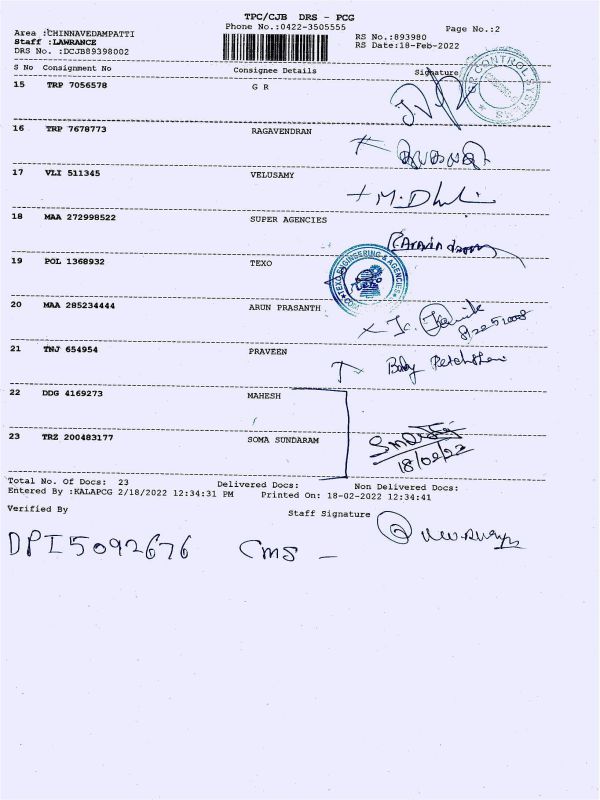 TPC/CJB DRS - PCG
Phone No.:0422-3505555
Page No.:2
Area :CHINNAVEDAMPATTI
RS No.:893980
Staff :LAWRANCE
RS Date:18-Feb-2022
DRS No. :DCJB89398002
S No Consignment No Consignee Details Signature
15 TRP 7056578 G R
G.R CONTROL SYSTEMS
16 TRP 7678773 RAGAVENDRAN
17 VLI 511345 VELUSAMY
18 MAA 272998522 SUPER AGENCIES
19 POL 1368932 TEXO
TEXO ENGINEERING & AGENCIES
20 MAA 285234444 ARUN PRASANTH
21 TNJ 654954 PRAVEEN
22 DDG 4169273 MAHESH
23 TRZ 200483177 SOMA SUNDARAM
18/02/22
Total No. Of Docs: 23 Delivered Docs: Non Delivered Docs:
Entered By :KALAPCG 2/18/2022 12:34:31 PM Printed On: 18-02-2022 12:34:41
Verified By Staff Signature
DPI5092676 CMS -